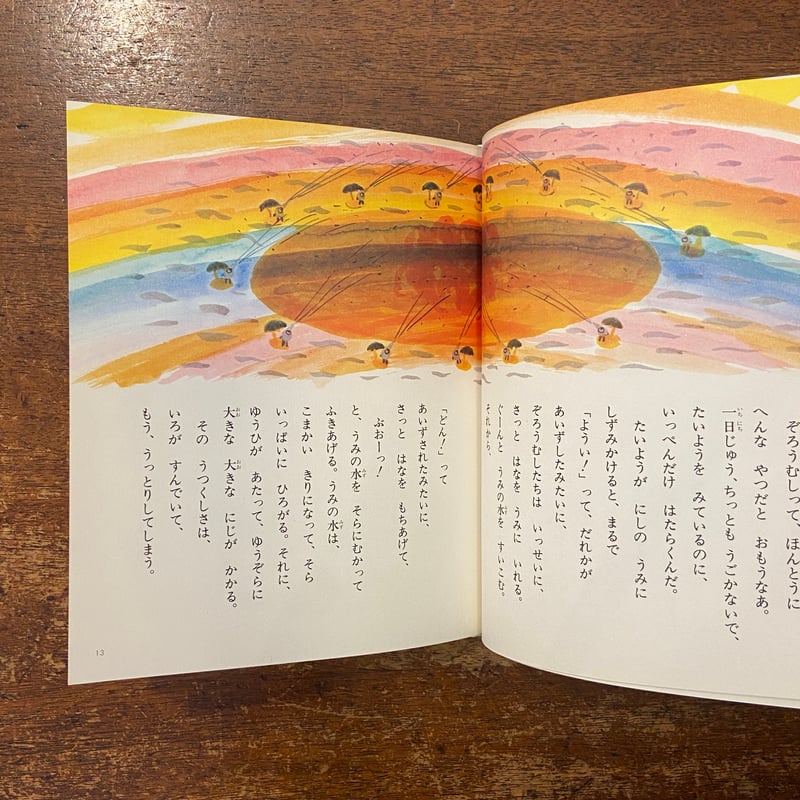 ぞろうむしって、ほんとうに
へんな やつだと おもうなあ。
一日じゅう、ちっとも うごかないで、
たいようを みているのに、
いっぺんだけ はたらくんだ。
たいようが にしの うみに
しずみかけると、まるで
「ようい!」って、だれかが
あいずしたみたいに、
ぞろうむしたちは いっせいに、
さっと はなを うみに いれる。
ぐーんと うみの水を すいこむ。
それから、
「どん!」って
あいずされたみたいに、
さっと はなを もちあげて、
ぷおーっ!
と、うみの水を そらにむかって
ふきあげる。うみの水は、
こまかい きりになって、そら
いっぱいに ひろがる。それに、
ゆうひが あたって、ゆうぞらに
大きな 大きな にじが かかる。
その うつくしさは、
いろが すんでいて、
もう、うっとりしてしまう。
13